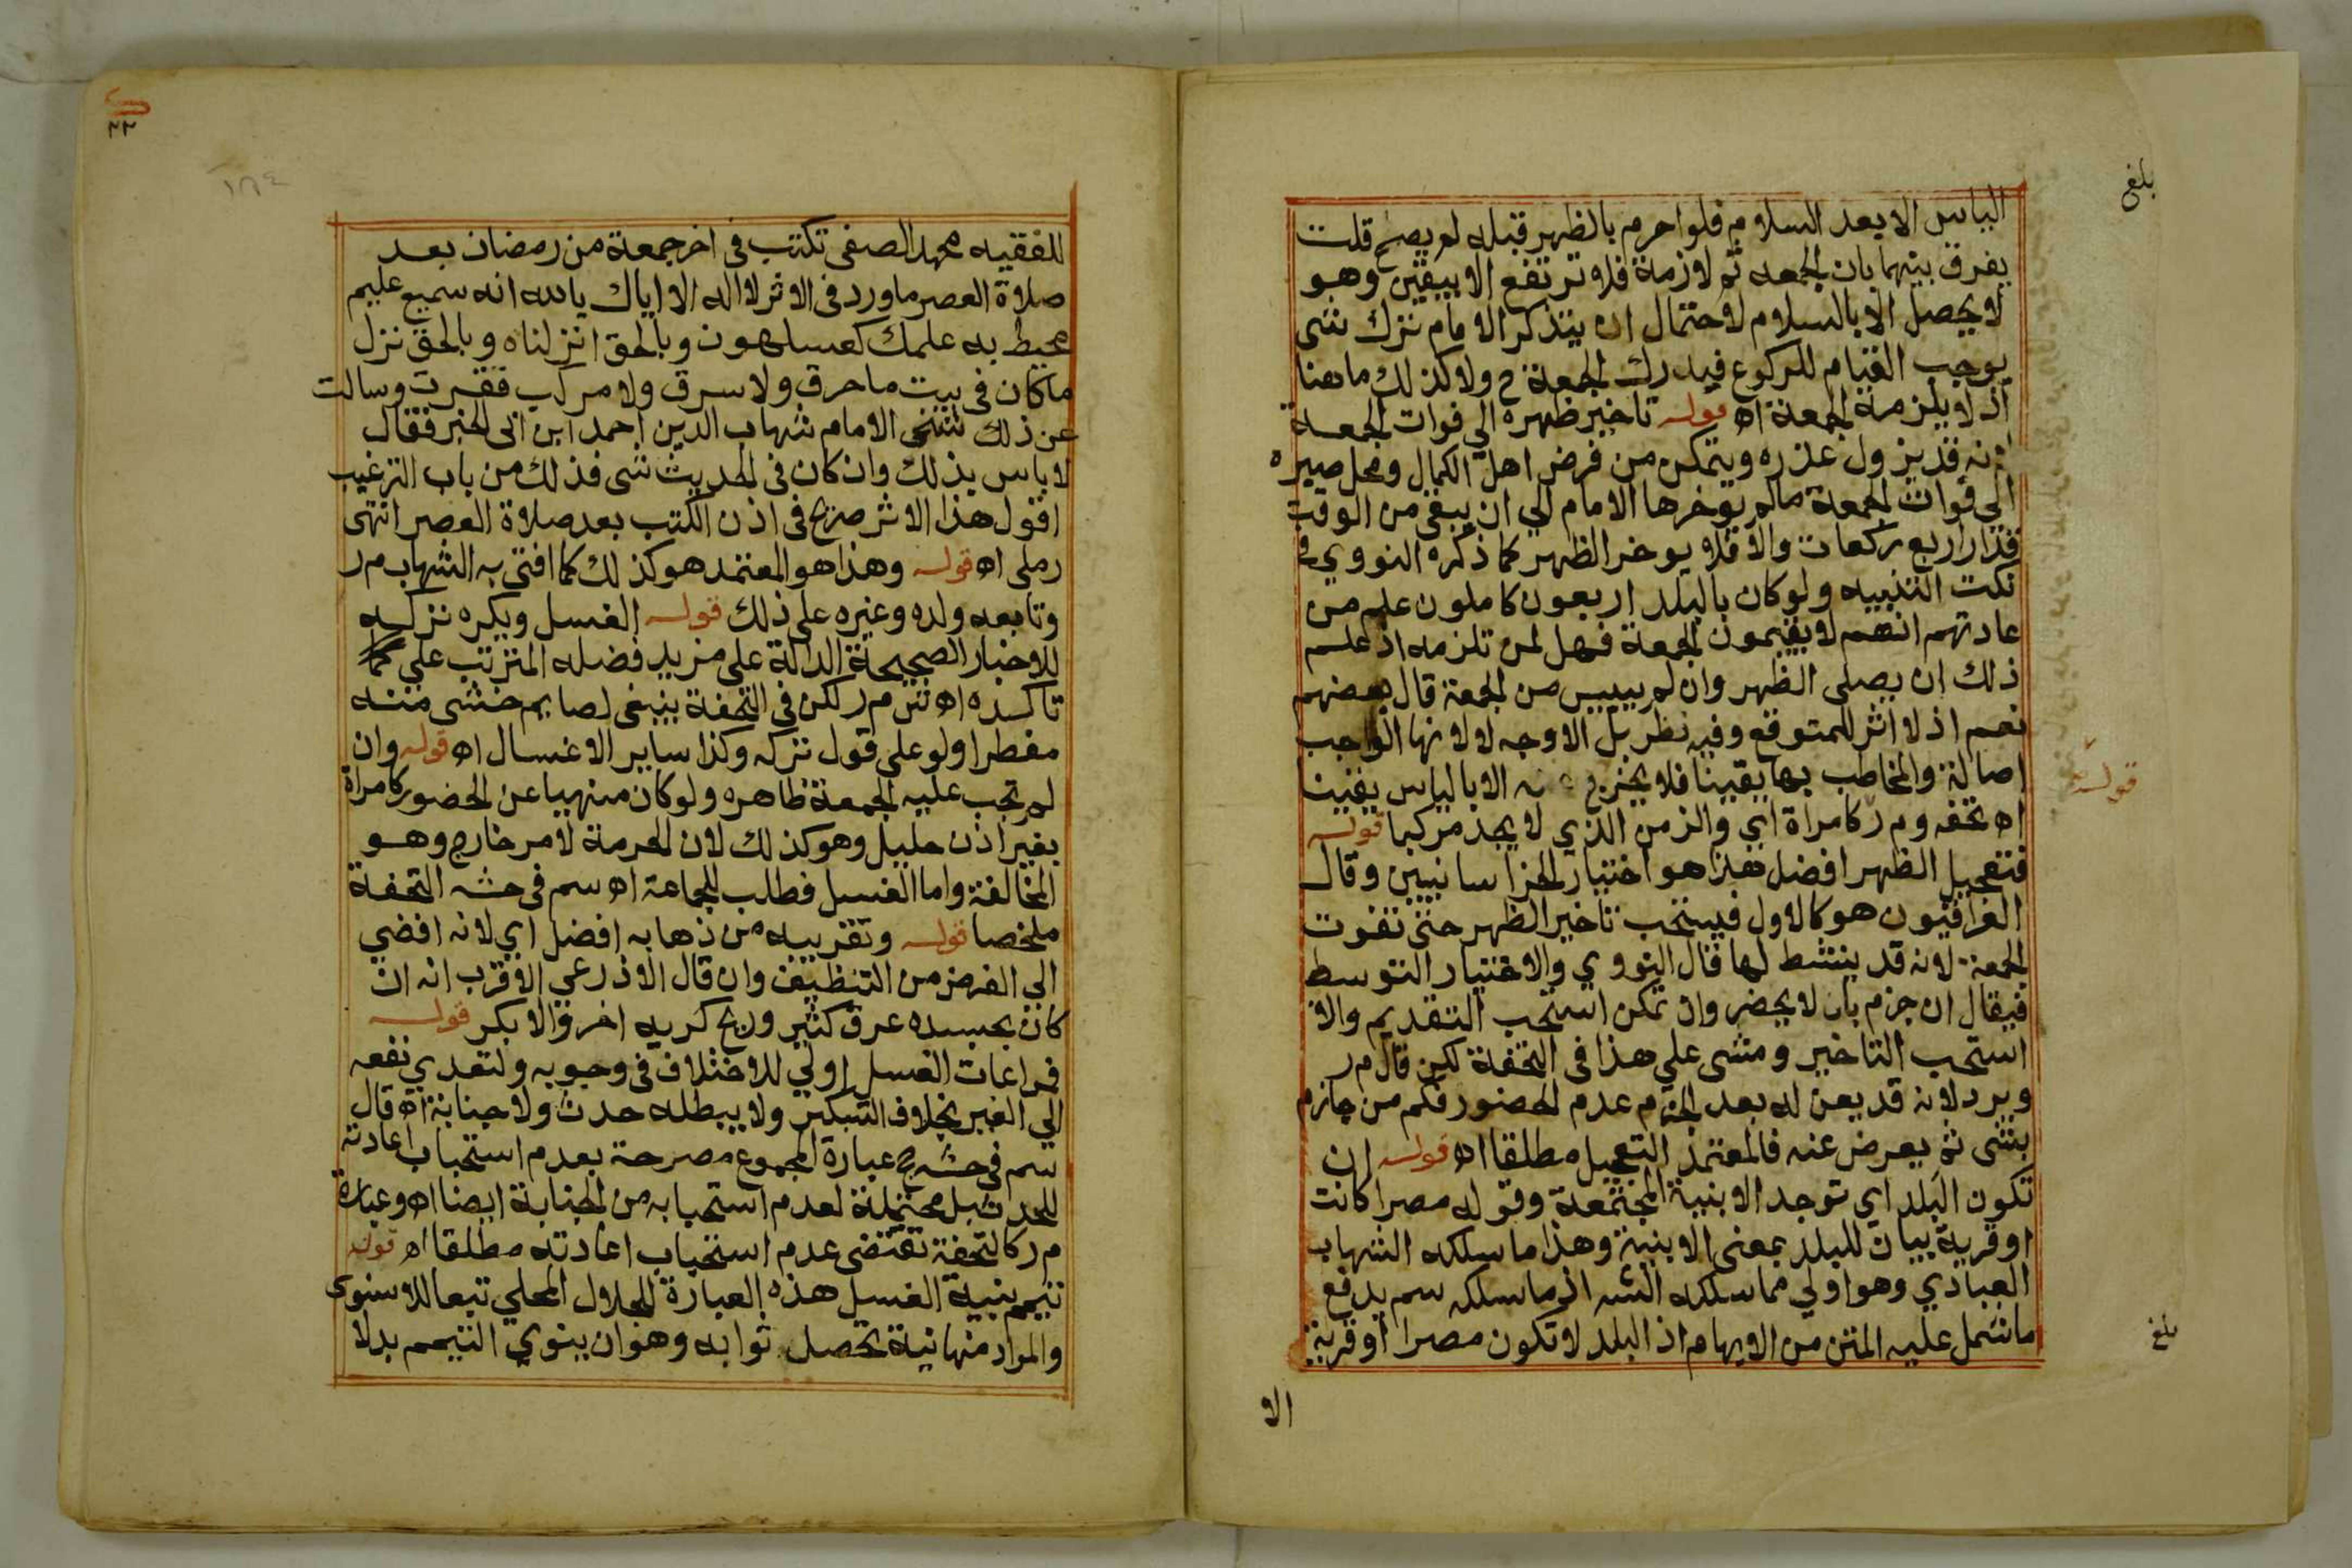 الياس الا بعد السلام فلو احرم بالظهر قبله لم يصح قلت
يفرق بينهما بان الجمعه ثم لازمة فلا ترتفع الا بيقين وهو
لا يحصل الا بالسلام لاحتمال ان يتذكر الامام ترك شى
يوجب القيام للركوع فيدرك الجمعة ح ولا كذلك ما هنا
اذ لا يلزمه الجمعة اه قوله تاخير ظهره الي فوات الجمعة
انه قد يزول عذره ويتمكن من فرض اهل الكمال ومحل صبره
الى فوات الجمعة مالم يوخرها الامام الي ان يبقى من الوقت
قدار اربع ركعات والا فلا يوخر الظهر كما ذكره النووي في
نكت التنبيه ولو كان بالبلد اربعون كاملون علم من
عادتهم انهم لا يقيمون الجمعة فهل لمن تلزمه اذ علم
ذلك ان يصلى الظهر وان لم ييس من الجمعة قال بعضهم
نعم اذ لا اثر للمتوقع وفيه نظر بل الاوجه لا لانها الواجب
اصالة والمخاطب بها يقينا فلا يخرج عنه الا بالياس يقينا
اه تحفه و م ر كامراة اي والزمن الذي لا يجد مركبا قوله
فتعجيل الظهر افضل هذا هو اختيار الخراسانيين وقال
العراقيون هو كالاول فيستحب تاخير الظهر حتى تفوت
الجمعة لانه قد ينشط لها قال النووي والاختيار التوسط
فيقال ان جزم بان لا يحضر وان تمكن استحب التقديم والا
استحب التاخير ومشى علي هذا فى التحفة لكن قال م ر
ويرد لانه قد يعن له بعد الجزم عدم الحضور فكم من جازم
بشى ثم يعرض عنه فالمعتمد التعجيل مطلقا اه قوله ان
تكون البلد اي توجد الابنية المجتمعة وقوله مصرا كانت
او قرية بيان للبلد بمعنى الابنية وهذا ما سلكه الشهاب
العبادي وهو اولي مما سلكه الشه اذ ما سلكه سم يدفع
ما شمل عليه المتن من الايهام اذ البلد لا تكون مصرا او قرية
الا
بلغ
قوله
بلغ
٣٣
١٨٤
للفقيه محمد الصفى تكتب فى اخر جمعة من رمضان بعد
صلاة العصر ما ورد فى الاثر لا اله الا اياك يا الله انه سميع عليم
محيط به علمك كعسلهون وبالحق انزلناه وبالحق نزل
ما كان فى بيت ما حرق ولا سرق ولا مركب فقرت وسالت
عن ذلك شيخى الامام شهاب الدين احمد ابن ابى الخير فقال
لا باس بذلك وان كان فى الحديث شى فذلك من باب الترغيب
اقول هذا الاثر صريح فى اذن الكتب بعد صلاة العصر انتهى
رملى اه قوله وهذا هو المعتمد هو كذلك كما افتى به الشهاب م ر
وتابعه ولده وغيره على ذلك قوله الغسل ويكره تركه
للاخبار الصحيحة الدالة على مزيد فضله المترتب على
تاكده اه ش م ر لكن فى التحفة ينبغى لصايم خشى منه
مفطرا ولو على قول تركه وكذا ساير الاغسال اه قوله وان
لم تجب عليه الجمعة ظاهره ولو كان منهيا عن الحضور كامراة
بغير اذن حليل وهو كذلك لان الحرمة لامر خارج وهو
المخالفة واما الغسل فطلب للجماعة اه سم فى حشه التحفة
ملخصا قوله وتقريبه من ذهابه افضل اي لانه افضي
الى الغرض من التنظيف وان قال الاذرعي الاقرب انه ان
كان بجسده عرق كثير وريح كريه اخر والا بكر قوله
فمراعات الغسل اولي للاختلاف فى وجوبه ولتعدي نفعه
الي الغير بخلاف التبكير ولا يبطله حدث ولا جنابة اه قال
سم فى حشه ج عبارة المجموع مصرحة بعدم استحباب اعادته
للحدث بل محتملة لعدم استحبابه من الجنابة ايضا اه وعبارة
م ر كالتحفة تقتضى عدم استحباب اعادته مطلقا اه قوله
تيمم بنية الغسل هذه العبارة للجلال المحلي تبعا للاسنوى
والمراد منها نية تحصل ثوابه وهو ان ينوي التيمم بدلا